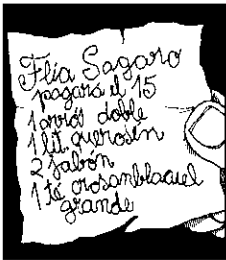 Flia Sagaro
pagará el 15
1 arroś doble
1 lit. querosén
2 jabón
1 té crosanblacuel
grande